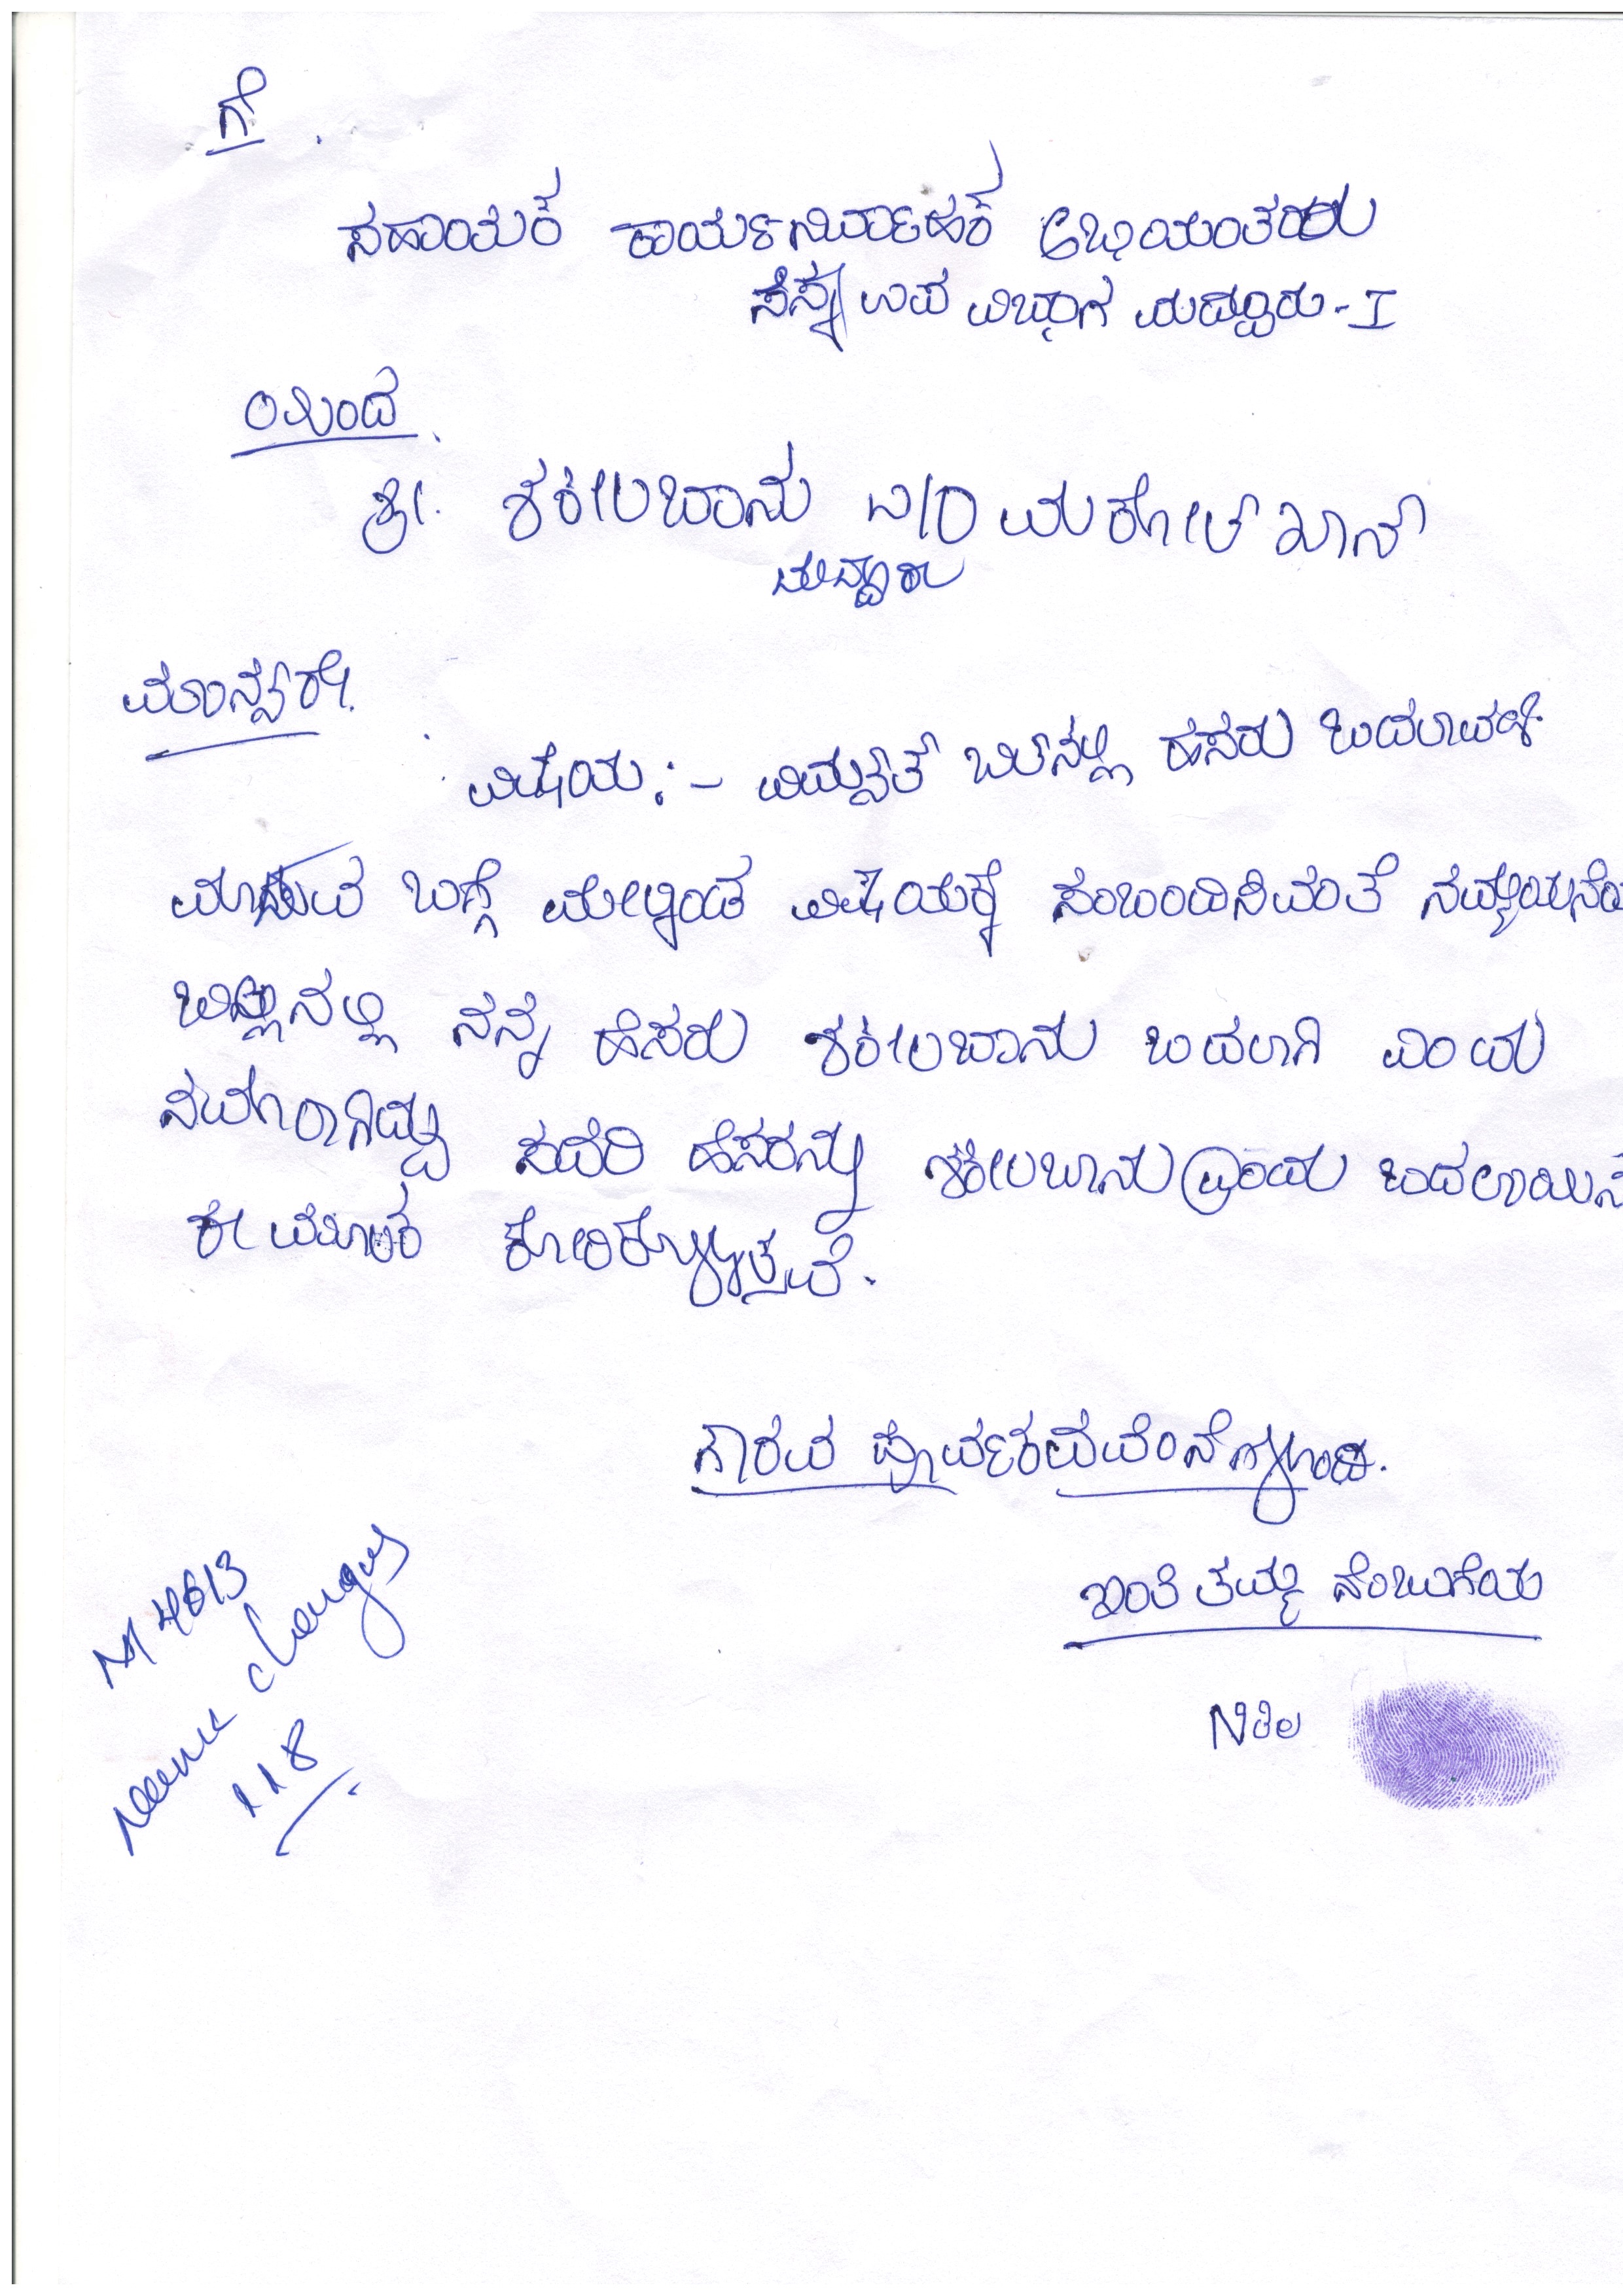 ಗೆ
ಸಹಾಯಕ ಕಾರ್ಯನಿರ್ವಾಹಕ ಅಭಿಯಂತರರು
ಸೆಸ್ಕ ಉಪ ವಿಭಾಗ ಮದ್ದೂರು-I
ರಿಂದ
ಶ್ರೀ. ಶಕೀಲಬಾನು
ಮದ್ದೂರು
ಮಾನ್ಯರೇ.
ವಿಷಯ :- ವಿದ್ಯುತ್ ಬಿಲ್‌ನಲ್ಲಿ ಹೆಸರು ಬದಲಾವಣೆ
ಮಾಡುವ ಬಗ್ಗೆ ಮೇಲ್ಕಂಡ ವಿಷಯಕ್ಕೆ ಸಂಬಂದಿಸಿದಂತೆ
ಬಿಲ್ಲಿನಲ್ಲಿ ನನ್ನ ಹೆಸರು ಶಕೀಲಬಾನು ಬದಲಾಗಿ ಎಂದು
ನಮೂದಾಗಿದ್ದು ಸದರಿ ಹೆಸರನ್ನು ಶಕೀಲಬಾನು ಎಂದು ಬದಲಾಯಿಸ
ಕೋರಿಕೊಳ್ಳುತ್ತೇವೆ.
ಗೌರವ ಪೂರ್ವಕವಂದನೆಗಳೊಂದಿಗೆ.
ಇಂತಿ ತಮ್ಮ ನಂಬುಗೆಯ
M 4613
name changes
118